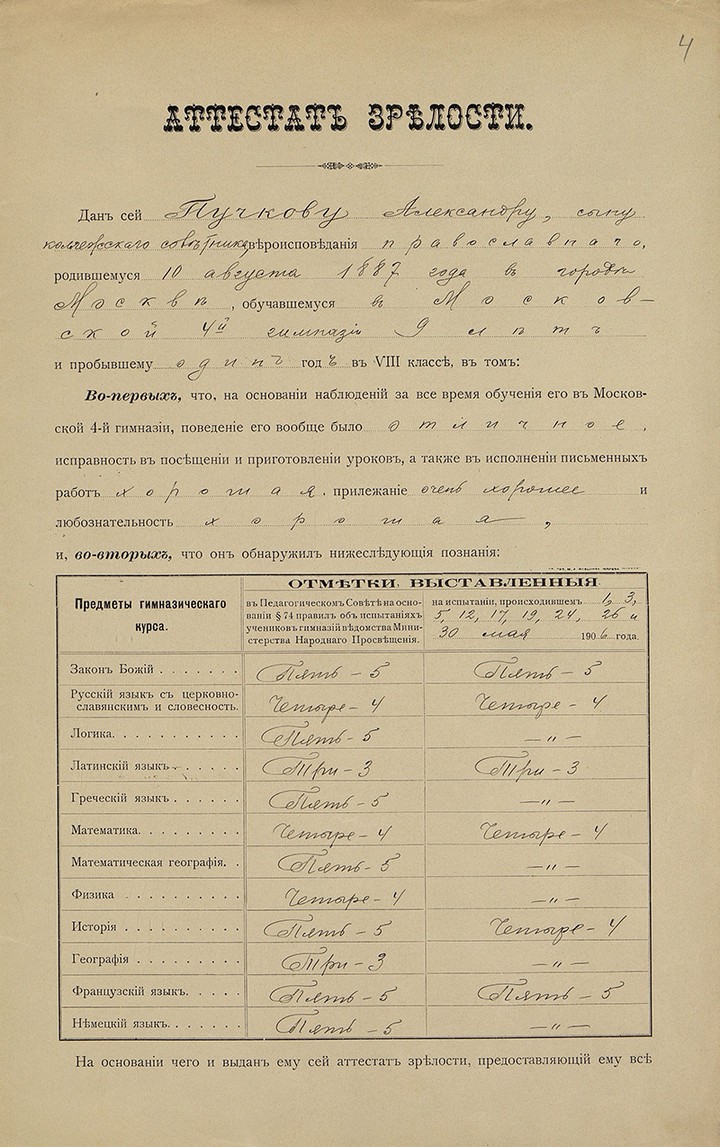 4
АТТЕСТАТЪ ЗРѢЛОСТИ.
Данъ сей Пучкову Александру, сыну
коллежскаго совѣтника, вѣроисповѣданія православнаго,
родившемуся 10 августа 1887 года въ городѣ
Москвѣ, обучавшемуся въ Москов-
ской 4й гимназіи 9 лѣтъ
и пробывшему одинъ годъ въ VIII классѣ, въ томъ:
Во-первыхъ, что, на основаніи наблюденій за все время обученія его въ Москов-
ской 4-й гимназіи, поведеніе его вообще было отличное,
исправность въ посѣщеніи и приготовленіи уроковъ, а также въ исполненіи письменныхъ
работъ хорошая, прилежаніе очень хорошее и
любознательность хорошая,
и, во-вторыхъ, что онъ обнаружилъ нижеслѣдующія познанія:
Предметы гимназическаго курса.
ОТМѢТКИ, ВЫСТАВЛЕННЫЯ
въ Педагогическомъ Совѣтѣ на осно-
ваніи § 74 правилъ объ испытаніяхъ
учениковъ гимназій вѣдомства Мини-
стерства Народнаго Просвѣщенія.
на испытаніи, происходившемъ 1, 3,
5, 12, 17, 19, 24, 26 и
30 мая 1906 года.
Законъ Божій . . . . . . . Пять – 5 Пять – 5
Русскій языкъ съ церковно-
славянскимъ и словесность. Четыре – 4 Четыре – 4
Логика. . . . . . . . . . . Пять – 5 — „ —
Латинскій языкъ . . . . . . Три – 3 Три – 3
Греческій языкъ . . . . . . Пять – 5 — „ —
Математика. . . . . . . . . Четыре – 4 Четыре – 4
Математическая географія. . Пять – 5 — „ —
Физика . . . . . . . . . . Четыре – 4 — „ —
Исторія . . . . . . . . . . Пять – 5 Четыре – 4
Географія . . . . . . . . . Три – 3 — „ —
Французскій языкъ. . . . . Пять – 5 Пять – 5
Нѣмецкій языкъ. . . . . . . Пять – 5 — „ —
На основаніи чего и выданъ ему сей аттестатъ зрѣлости, предоставляющій ему всѣ